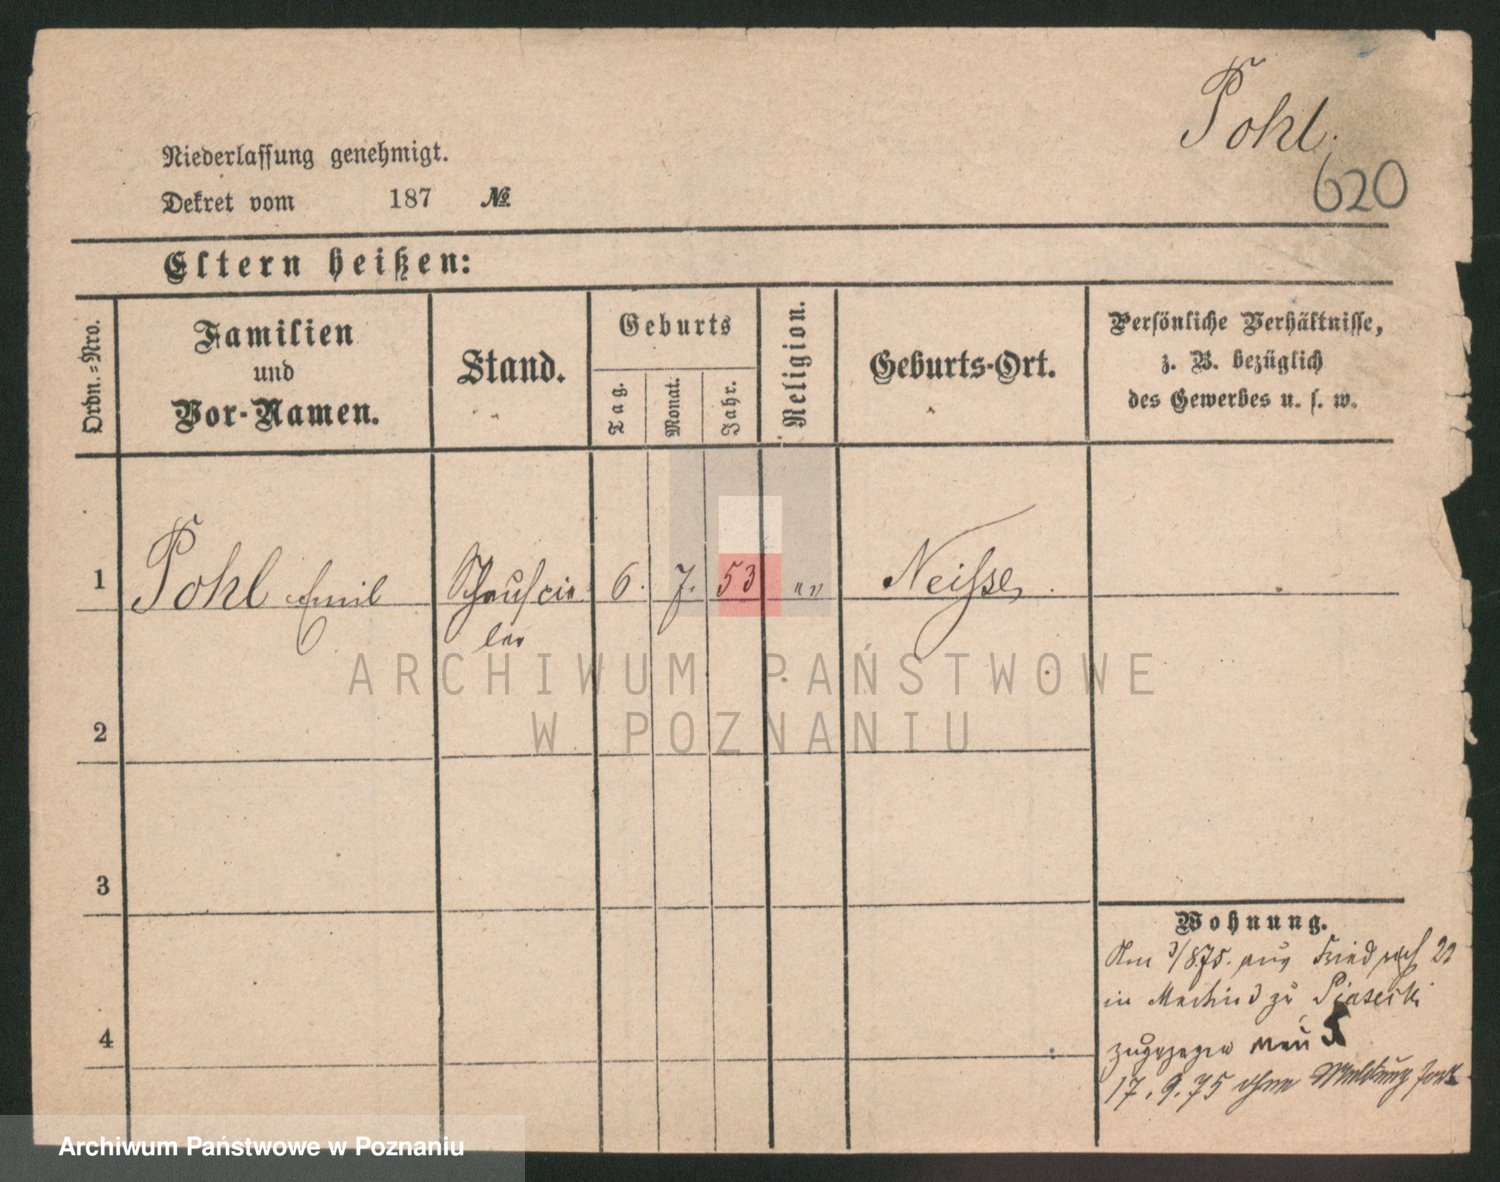 Pohl.
620
Niederlassung genehmigt.
Dekret vom 187 №
Eltern heißen:
Ordn.-Nro.
Familien
und
Vor-Namen.
Stand.
Geburts
Tag.
Monat.
Jahr.
Religion.
Geburts-Ort.
Persönliche Verhältnisse,
z. B. bezüglich
des Gewerbes u. s. w.
1 Pohl Emil Schauspie 6. 7. 53 Neisse
ler
ARCHIWUM PAŃSTWOWE
W POZNANIU
2
3
4
Wohnung.
Am 3/875. aus 22
in Martin 3 zu Piasecki
zugezogen
17. 9. 75 ohne Meldung fort
Archiwum Państwowe w Poznaniu